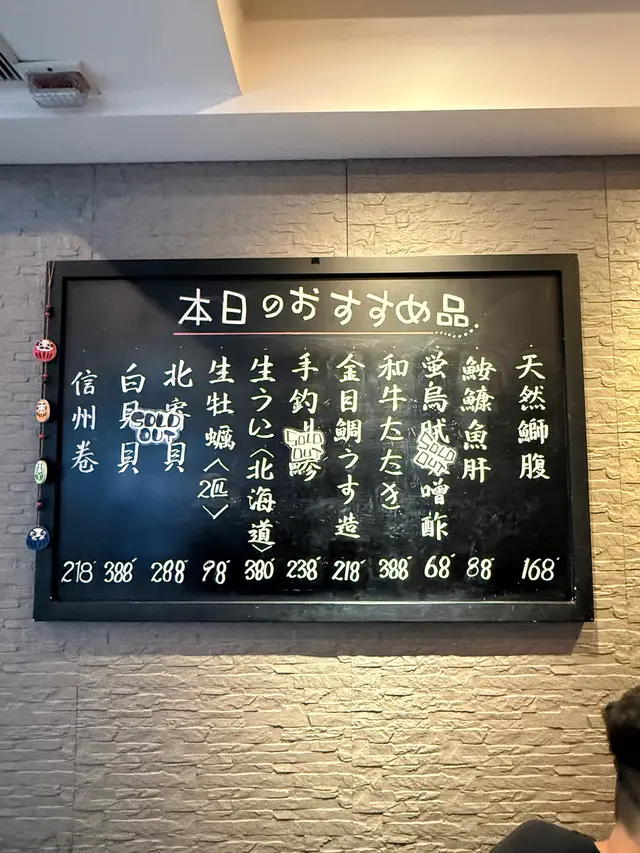 本日のおすすめ品
天然鰤腹
168
鮟鱇魚肝
88
蛍烏賊
噌酢
SOLD OUT
68
和牛たたき
388
金目鯛うす造
218
手釣
鰺
SOLD OUT
238
生うに〈北海道〉
380
生牡蠣〈2匹〉
98
北寄貝
SOLD OUT
288
白貝貝
388
信州巻
218